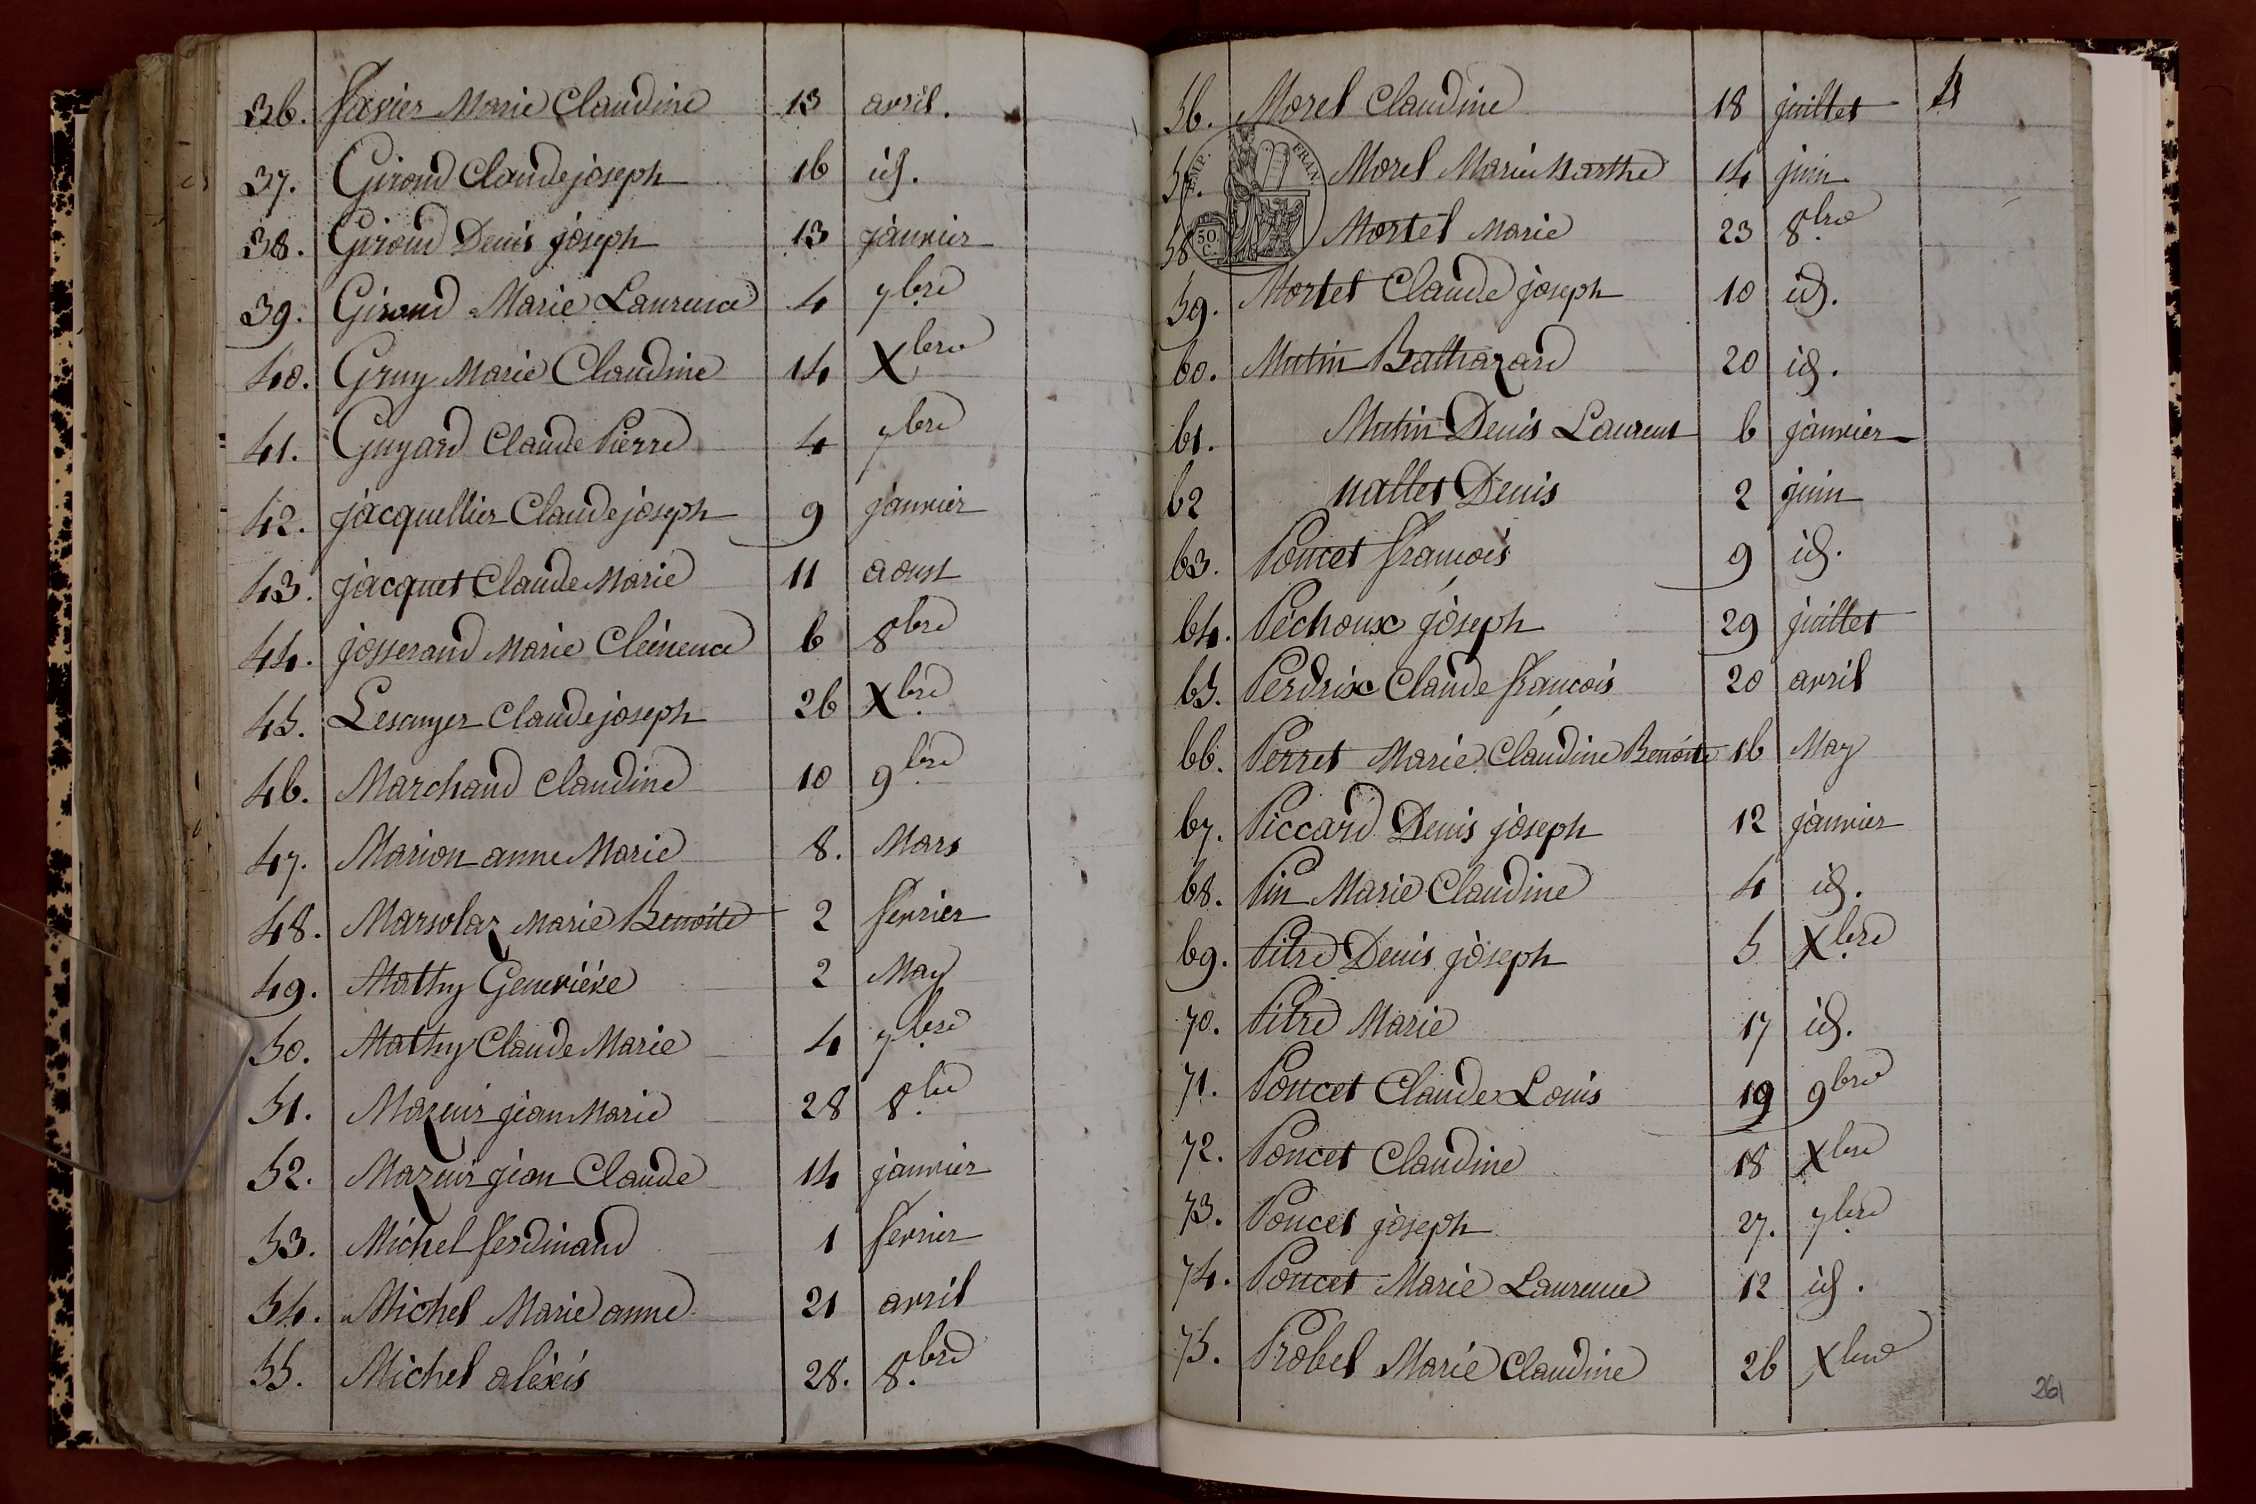 36. favier Marie Claudine 13 avril.
37. Giroud Claude joseph 16 id.
38. Giroud Denis joseph 13 janvier
39. Giroud Marie Laurence 4 7bre
40. Gruy Marie Claudine 14 Xbre
41. Guyard Claude Pierre 4 7bre
42. jacquellier Claude joseph 9 janvier
43. jacquet Claude Marie 11 aoust
44. josserand Marie Clémence 6 8bre
45. Lesanyer Claude joseph 26 Xbre
46. Marchand Claudine 10 9bre
47. Marion anne Marie 8. Mars
48. Marsolaz Marie Benoite 2 fevrier
49. Mathy Geneviéve 2 May
50. Mathy Claude Marie 4 7bre
51. Mazuir jean Marie 28 8bre
52. Mazuir jean Claude 14 janvier
53. Michel ferdinand 1 fevrier
54. Michel Marie anne 21 avril
55. Michel aléxis 28. 8.bre
56. Morel Claudine 18 juillet
57. Morel Marie Marthe 14 juin
58 Mortet Marie 23 8bre
59. Mortet Claude joseph 10 id.
60. Mutin Balthazard 20 id.
61. Mutin Denis Laurent 6 janvier
62 nallet Denis 2 juin
63. Poncet françois 9 id.
64. Péchoux joseph 29 juillet
65. Perdrix Claude françois 20 avril
66. Perret Marie Claudine Benoite 16 May
67. Piccard Denis joseph 12 janvier
68. Pin Marie Claudine 4 id.
69. Pitre Denis joseph 5 Xbre
70. Pitre Marie 17 id.
71. Poncet Claude Louis 19 9bre
72. Poncet Claudine 18 Xbre
73. Poncet joseph 27. 7bre
74. Poncet Marie Laurence 12 id.
75. Probel Marie Claudine 26 Xbre
EMP. FRAN.
50 C.
261